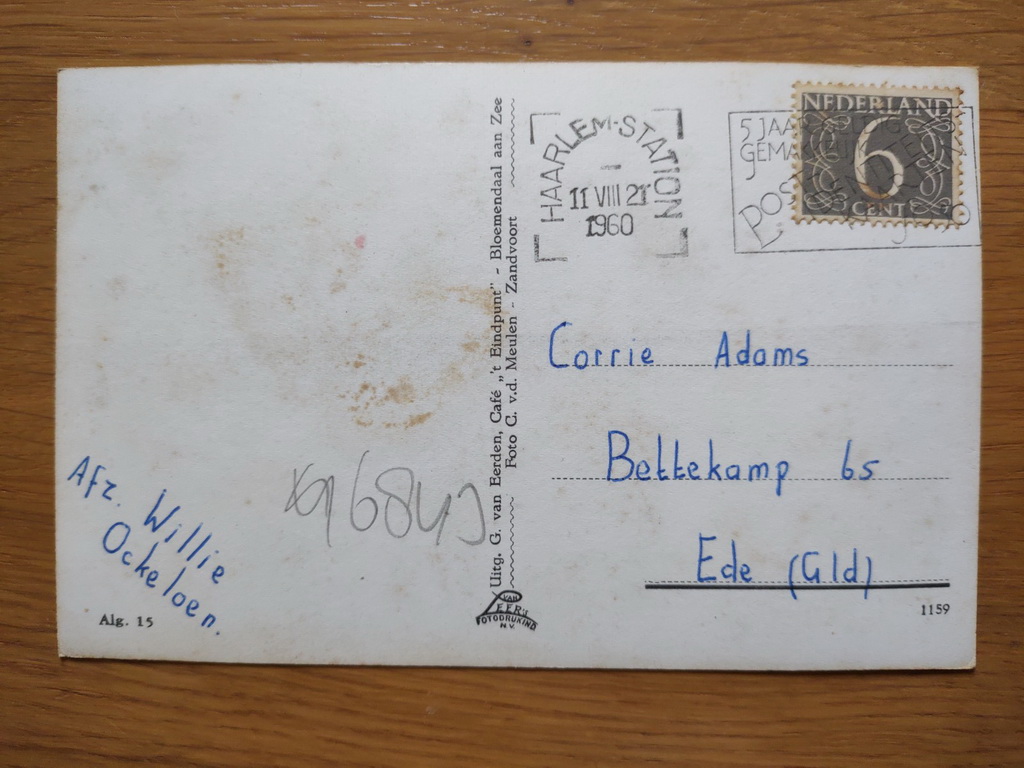 HAARLEM-STATION
11 VIII 21
1960
5 JAAR
GEMAK
POST
NEDERLAND
6
CENT
Corrie Adams
Bettekamp 65
Ede (Gld)
1159
Uitg. G. van Eerden, Café „'t Eindpunt" - Bloemendaal aan Zee
Foto C. v.d. Meulen - Zandvoort
VAN
LEER'S
FOTODRUKIND
N.V.
Afz. Willie
Ockeloen.
Alg. 15